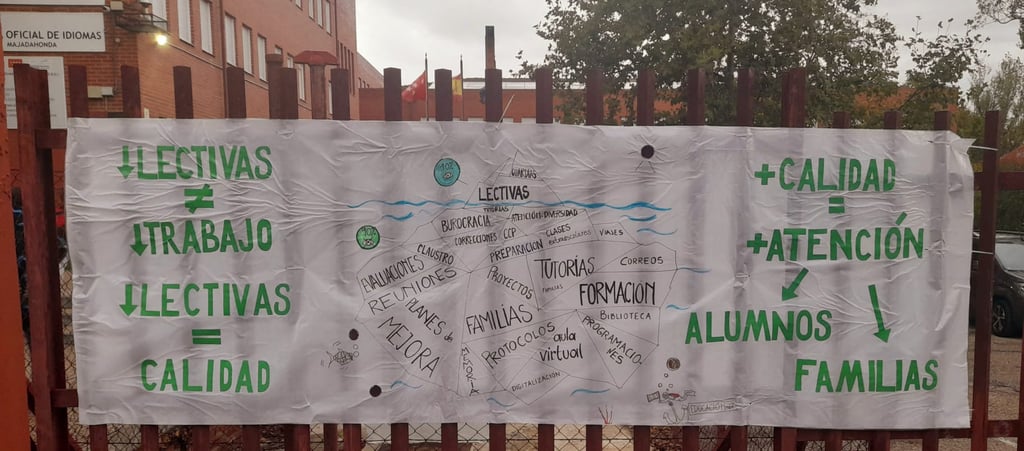 OFICIAL DE IDIOMAS
MAJADAHONDA
↓LECTIVAS
≠
↓TRABAJO
↓LECTIVAS
=
CALIDAD
GUARDIAS
LECTIVAS
TUTORIAS
ATENCION DIVERSIDAD
BUROCRACIA
CORRECCIONES CCP
CLASES
extraescolares
VIAJES
CLAUSTRO
PREPARACION
EVALUACIONES
REUNIONES
PLANES de
MEJORA
PROYECTOS
FAMILIAS
TUTORÍAS
FAMILIAS
CORREOS
FORMACION
BIBLIOTECA
PROTOCOLOS
aula
virtual
DIGITALIZACIÓN
PROGRAMACIO-
NES
+CALIDAD
=
+ATENCIÓN
ALUMNOS
FAMILIAS